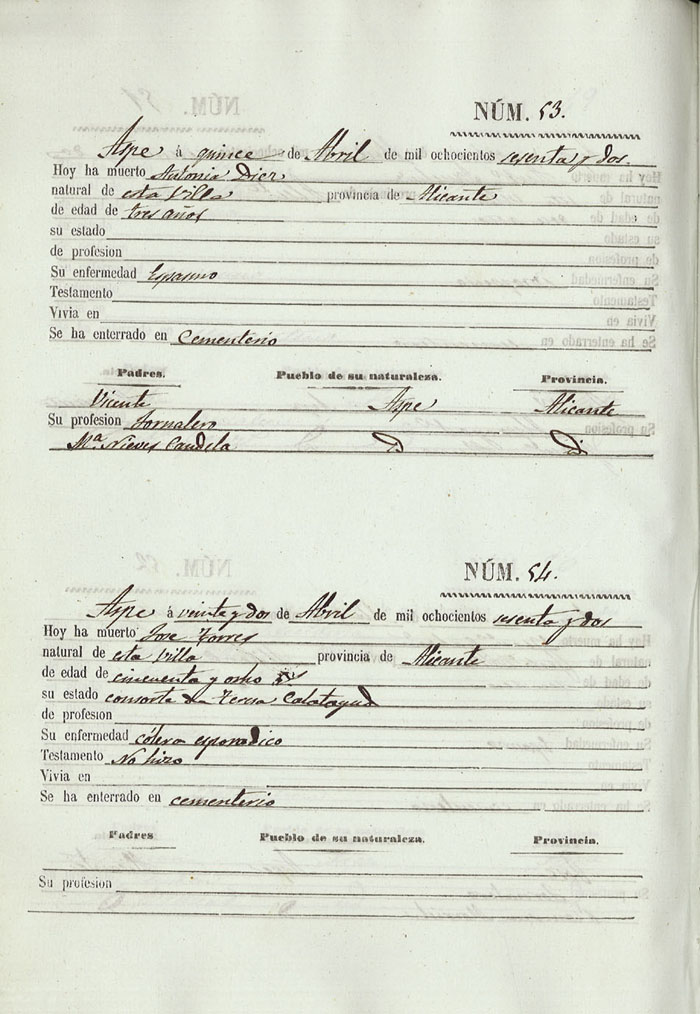 NÚM. 53.
Aspe á quince de Abril de mil ochocientos sesenta y dos.
Hoy ha muerto Antonia Diez
natural de esta Villa provincia de Alicante
de edad de tres años
su estado
de profesion
Su enfermedad Espasmo
Testamento
Vivia en
Se ha enterrado en Cementerio
Padres. Pueblo de su naturaleza. Provincia.
Vicente Aspe Alicante
Su profesion Jornalero
Mª Nieves Candela D D
NÚM. 54.
Aspe á veinte y dos de Abril de mil ochocientos sesenta y dos
Hoy ha muerto José Torres
natural de esta Villa provincia de Alicante
de edad de cincuenta y ocho
su estado consorte de Teresa Calatayud
de profesion
Su enfermedad cólera esporadico
Testamento No hizo
Vivia en
Se ha enterrado en cementerio
Padres Pueblo de su naturaleza. Provincia.
Su profesion